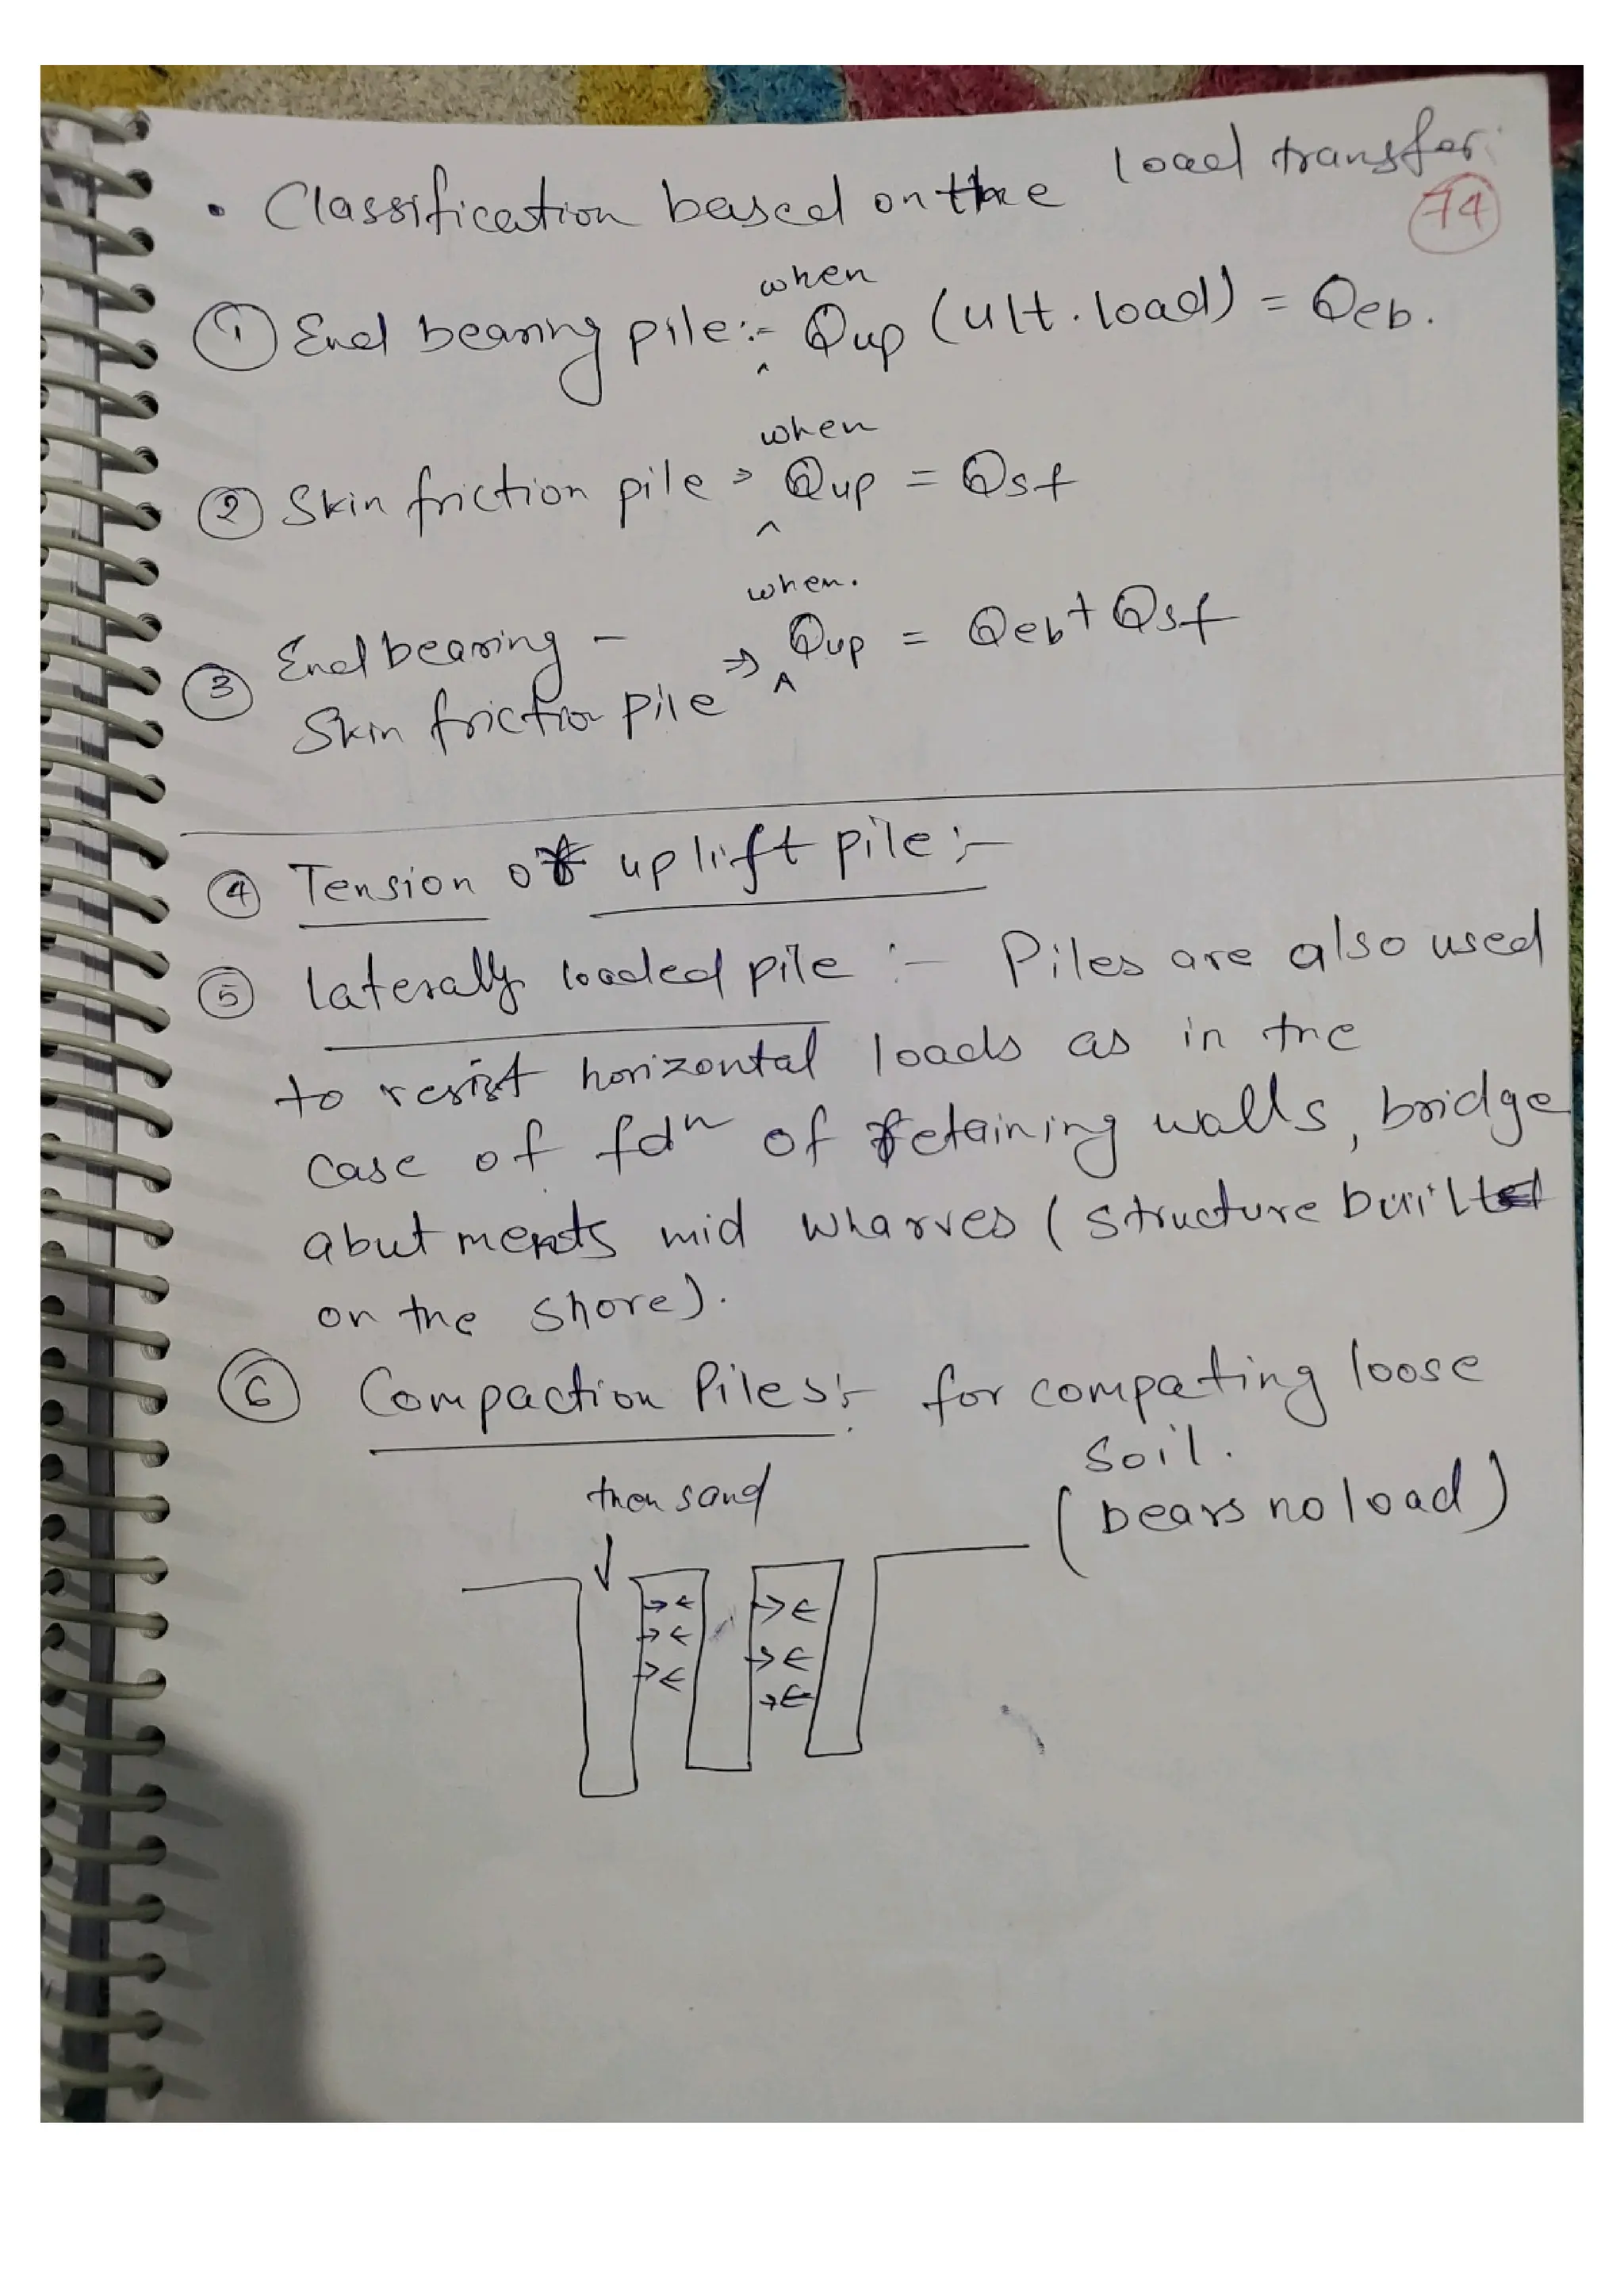 • Classification based on the load transfer
74
① End bearing pile:- when Qup (ult. load) = Qeb.
② Skin friction pile ⇒ when Qup = Qsf
③ End bearing -
Skin friction pile ⇒ when. Qup = Qeb + Qsf
④ Tension or uplift pile :-
⑤ laterally loaded pile :- Piles are also used
to resist horizontal loads as in the
case of fdn of retaining walls, bridge
abutments mid wharves (structure built
on the shore).
⑥ Compaction Piles:- for compating loose
soil.
(bears no load)
then sand